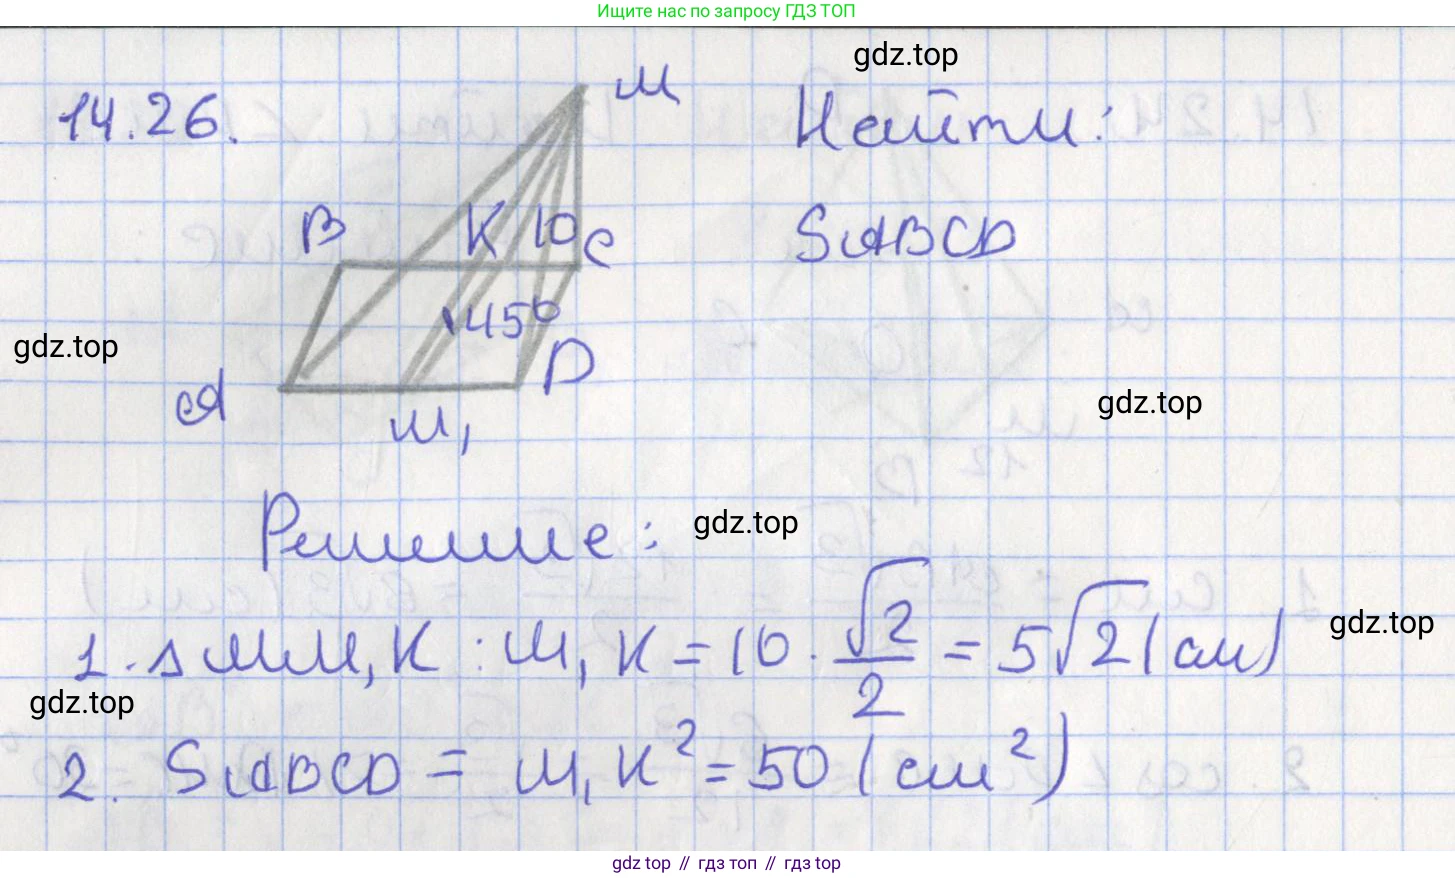 Ищите нас по запросу ГДЗ ТОП
gdz.top
14.26.
M
Найти:
B
K
10
C
SABCD
45°
gdz.top
D
A
M₁
gdz.top
Решение:
gdz.top
1. ΔMM₁K : M₁K = 10 · √2/2 = 5√2 (см)
gdz.top
gdz.top
2. SABCD = M₁K² = 50 (см²)
gdz top // гдз топ // гдз top